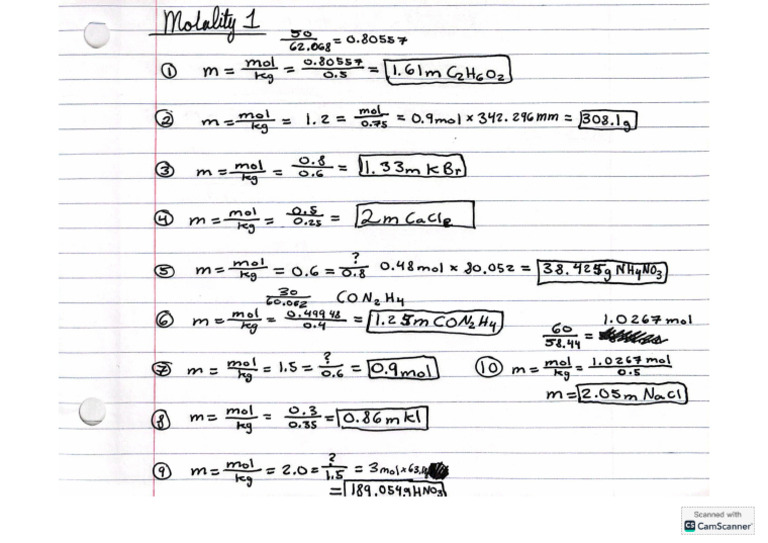 Molality 1
50/62.068 = 0.80557
① m = mol/kg = 0.80557/0.5 = 1.61m C2H6O2
② m = mol/kg = 1.2 = mol/0.75 = 0.9mol × 342.296mm = 308.1g
③ m = mol/kg = 0.8/0.6 = 1.33m KBr
④ m = mol/kg = 0.5/0.25 = 2m CaCl2
⑤ m = mol/kg = 0.6 = ?/0.8 0.48mol × 80.052 = 38.425g NH4NO3
30/60.062 CON2H4
⑥ m = mol/kg = 0.49948/0.4 = 1.25m CON2H4
60/58.44 = 1.0267 mol
⑦ m = mol/kg = 1.5 = ?/0.6 = 0.9mol
⑩ m = mol/kg = 1.0267mol/0.5
m = 2.05m NaCl
⑧ m = mol/kg = 0.3/0.35 = 0.86m kl
⑨ m = mol/kg = 2.0 = ?/1.5 = 3mol×63.
= 189.054g HNO3
Scanned with
CS CamScanner